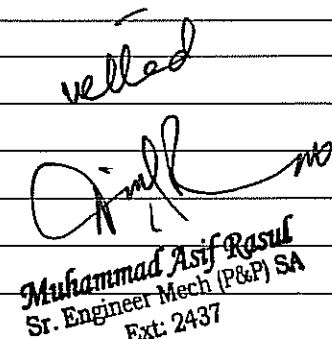 vetted
Muhammad Asif Rasul
Sr. Engineer Mech (P&P) SA
Ext: 2437